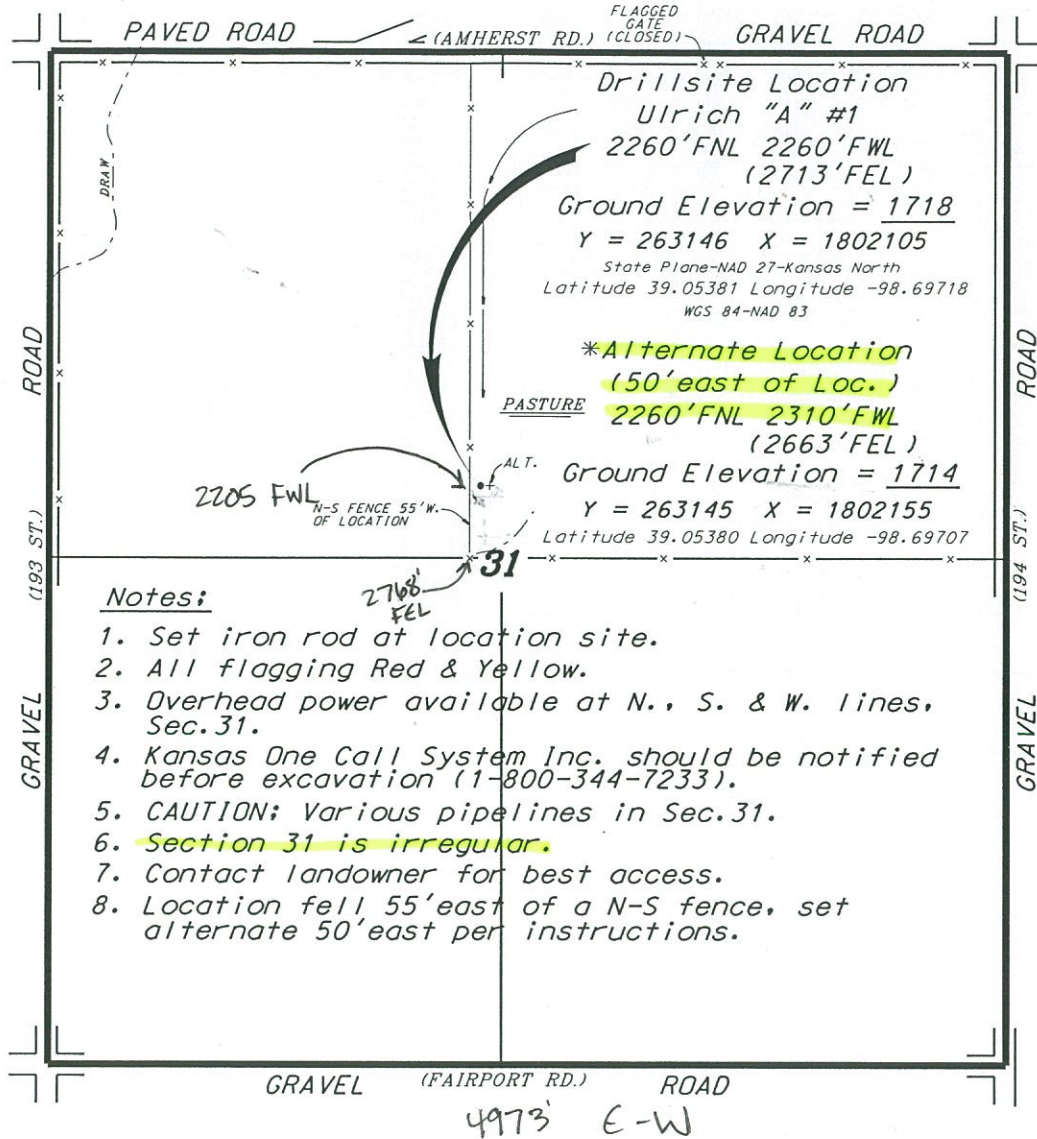 PAVED ROAD
(AMHERST RD.)
FLAGGED
GATE
(CLOSED)
GRAVEL ROAD
DRAW
Drillsite Location
Ulrich "A" #1
2260'FNL 2260'FWL
(2713'FEL)
Ground Elevation = 1718
Y = 263146 X = 1802105
State Plane-NAD 27-Kansas North
Latitude 39.05381 Longitude -98.69718
WGS 84-NAD 83
*Alternate Location
(50'east of Loc.)
PASTURE
2260'FNL 2310'FWL
(2663'FEL)
ALT.
Ground Elevation = 1714
Y = 263145 X = 1802155
Latitude 39.05380 Longitude -98.69707
2205 FWL
N-S FENCE 55'W.
OF LOCATION
31
2768'
FEL
GRAVEL (193 ST.) ROAD
GRAVEL (194 ST.) ROAD
Notes:
1. Set iron rod at location site.
2. All flagging Red & Yellow.
3. Overhead power available at N., S. & W. lines,
Sec.31.
4. Kansas One Call System Inc. should be notified
before excavation (1-800-344-7233).
5. CAUTION: Various pipelines in Sec.31.
6. Section 31 is irregular.
7. Contact landowner for best access.
8. Location fell 55'east of a N-S fence, set
alternate 50'east per instructions.
GRAVEL (FAIRPORT RD.) ROAD
4973' E-W